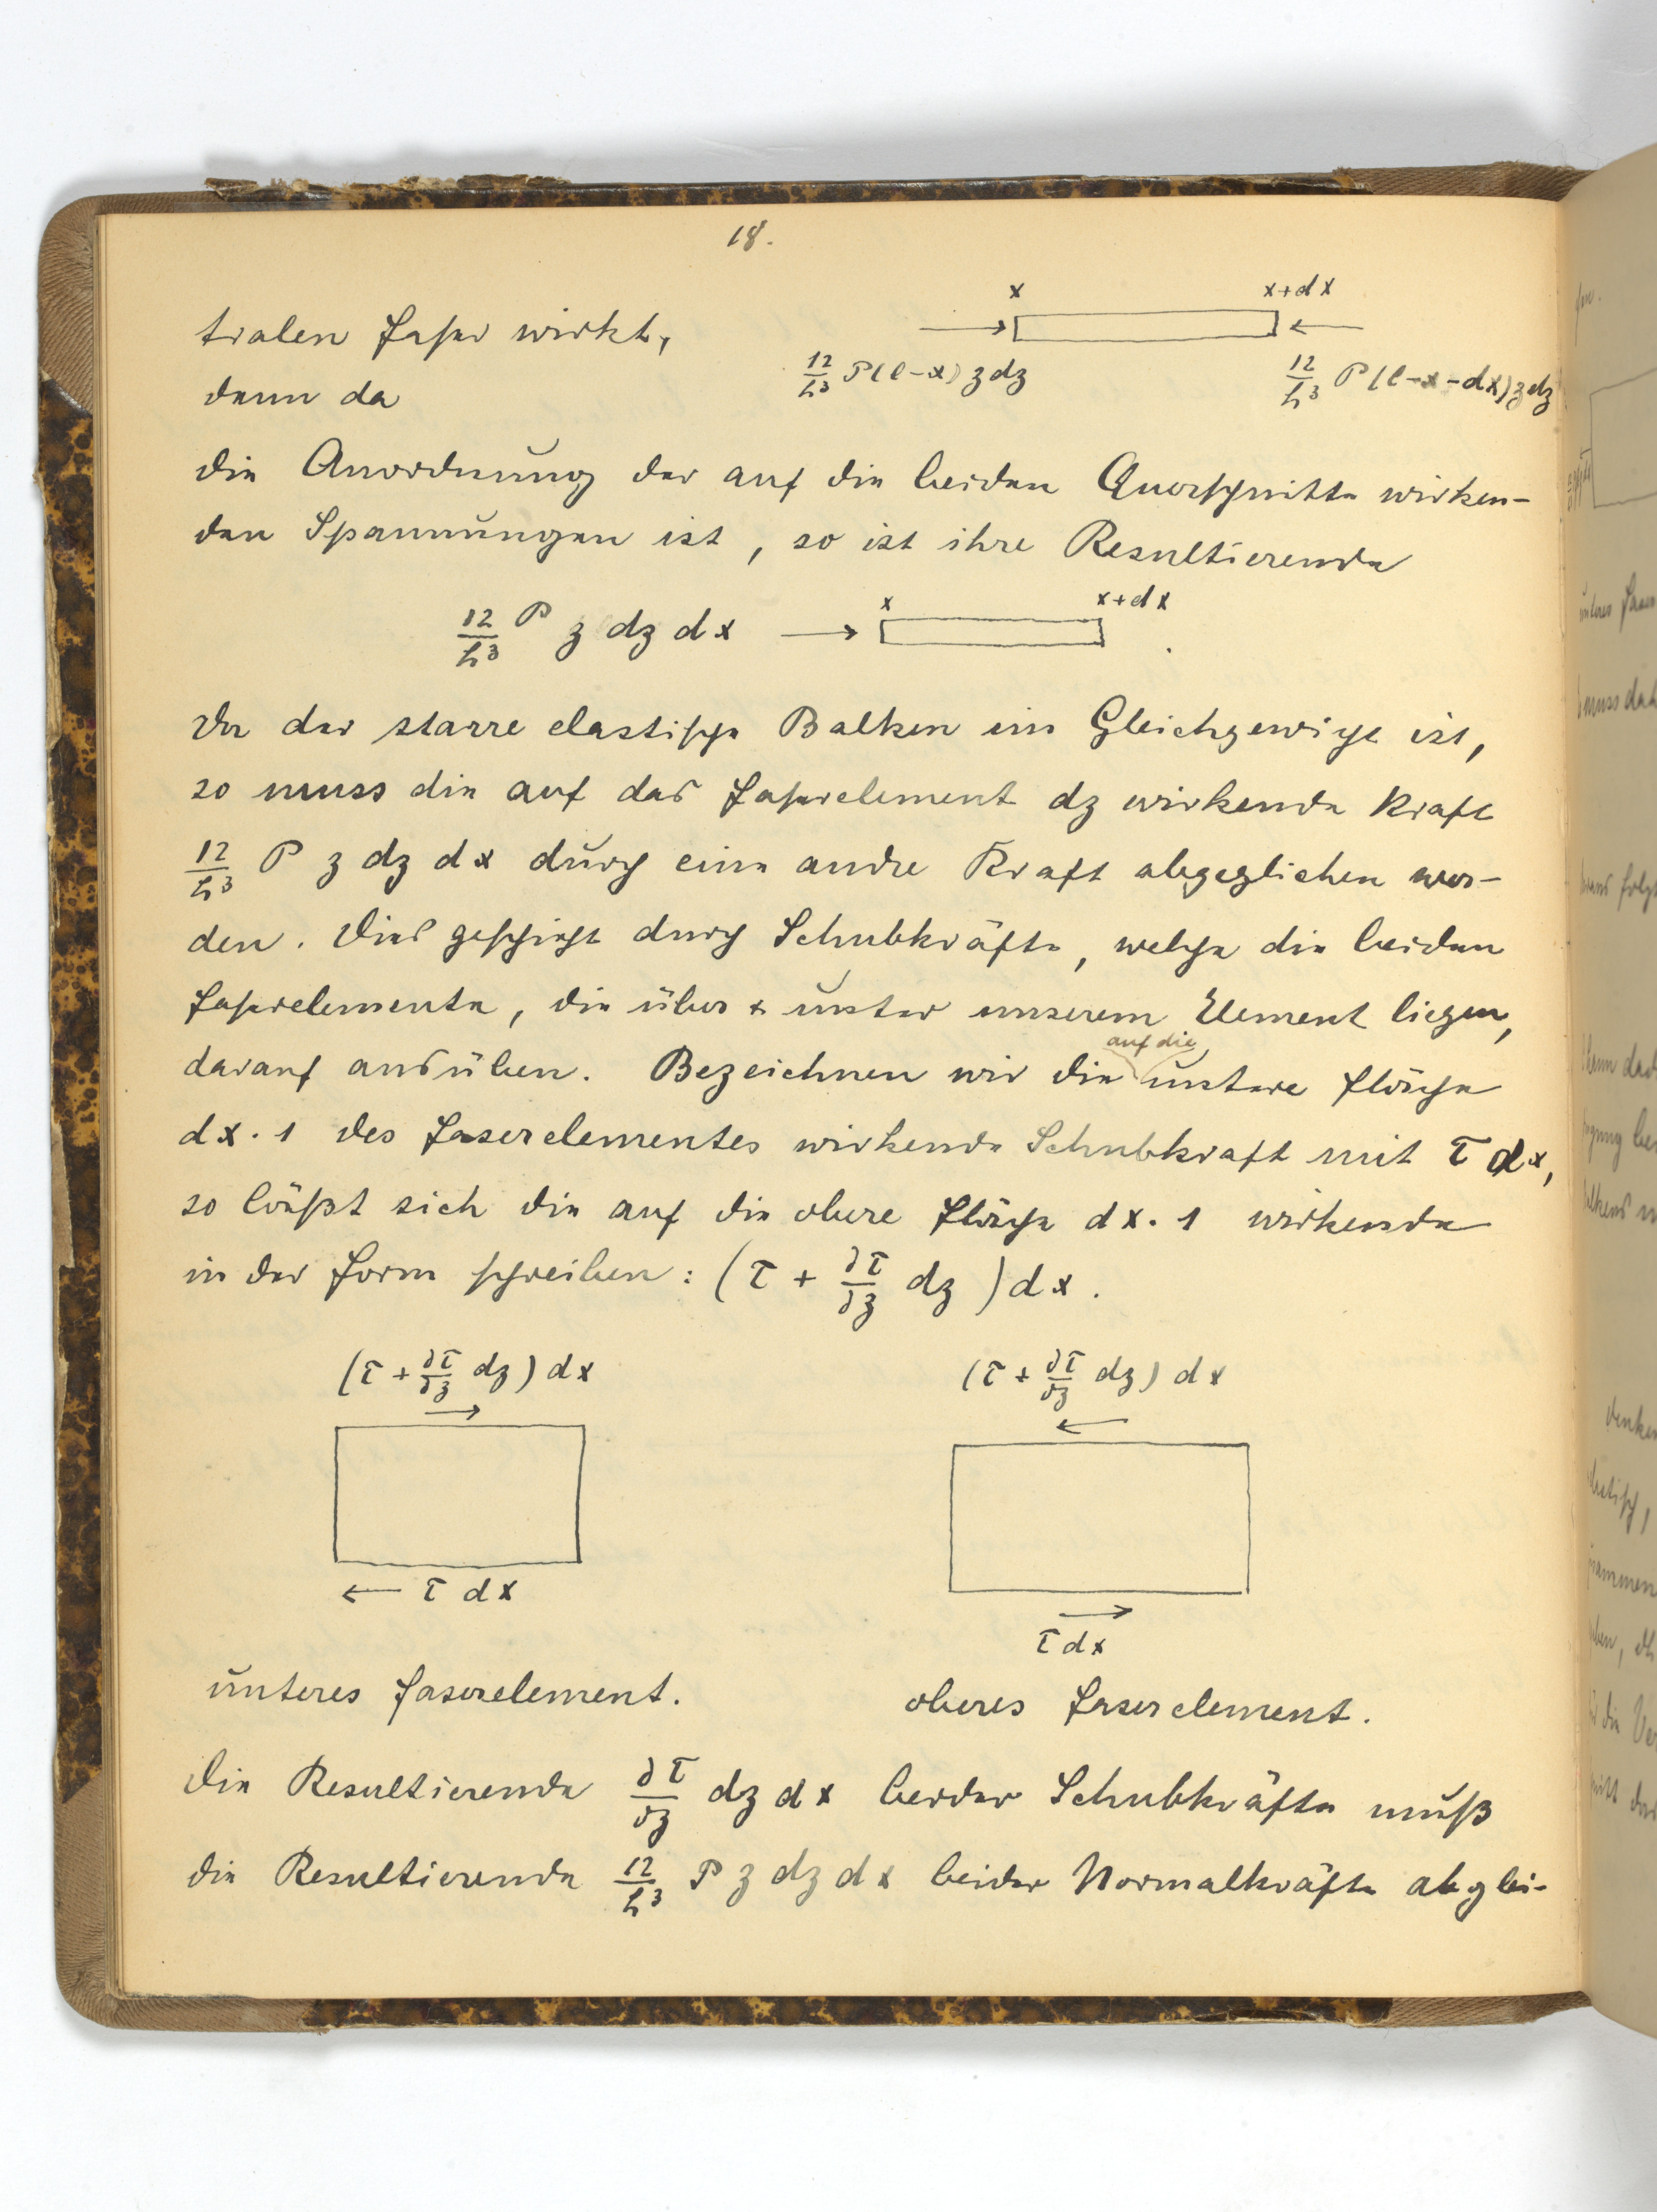 18.
x x+dx
tralen Faser wirkt,
12/h³ P(l-x) z dz 12/h³ P(l-x-dx) z dz
denn da
die Anordnung der auf die beiden Querschnitte wirken-
den Spannungen ist, so ist ihre Resultierende
x x+dx
12/h³ P z dz dx → .
Da der starre elastische Balken im Gleichgewicht ist,
so muss die auf das Faserelement dz wirkende Kraft
12/h³ P z dz dx durch eine andre Kraft abgeglichen wer-
den. Dies geschieht durch Schubkräfte, welche die beiden
Faserelemente, die über & unter unserem Element liegen,
auf die
darauf ausüben. Bezeichnen wir die untere Fläche
dx·1 des Faserelementes wirkende Schubkraft mit τ dx,
so läßt sich die auf die obere Fläche dx·1 wirkende
in der Form schreiben: (τ + ∂τ/∂z dz) dx.
(τ + ∂τ/∂z dz) dx (τ + ∂τ/∂z dz) dx
→ ←
← τ dx →
τ dx
unteres Faserelement. oberes Faserelement.
Die Resultierende ∂τ/∂z dz dx beider Schubkräfte muß
die Resultierende 12/h³ P z dz dx beider Normalkräfte abglei-